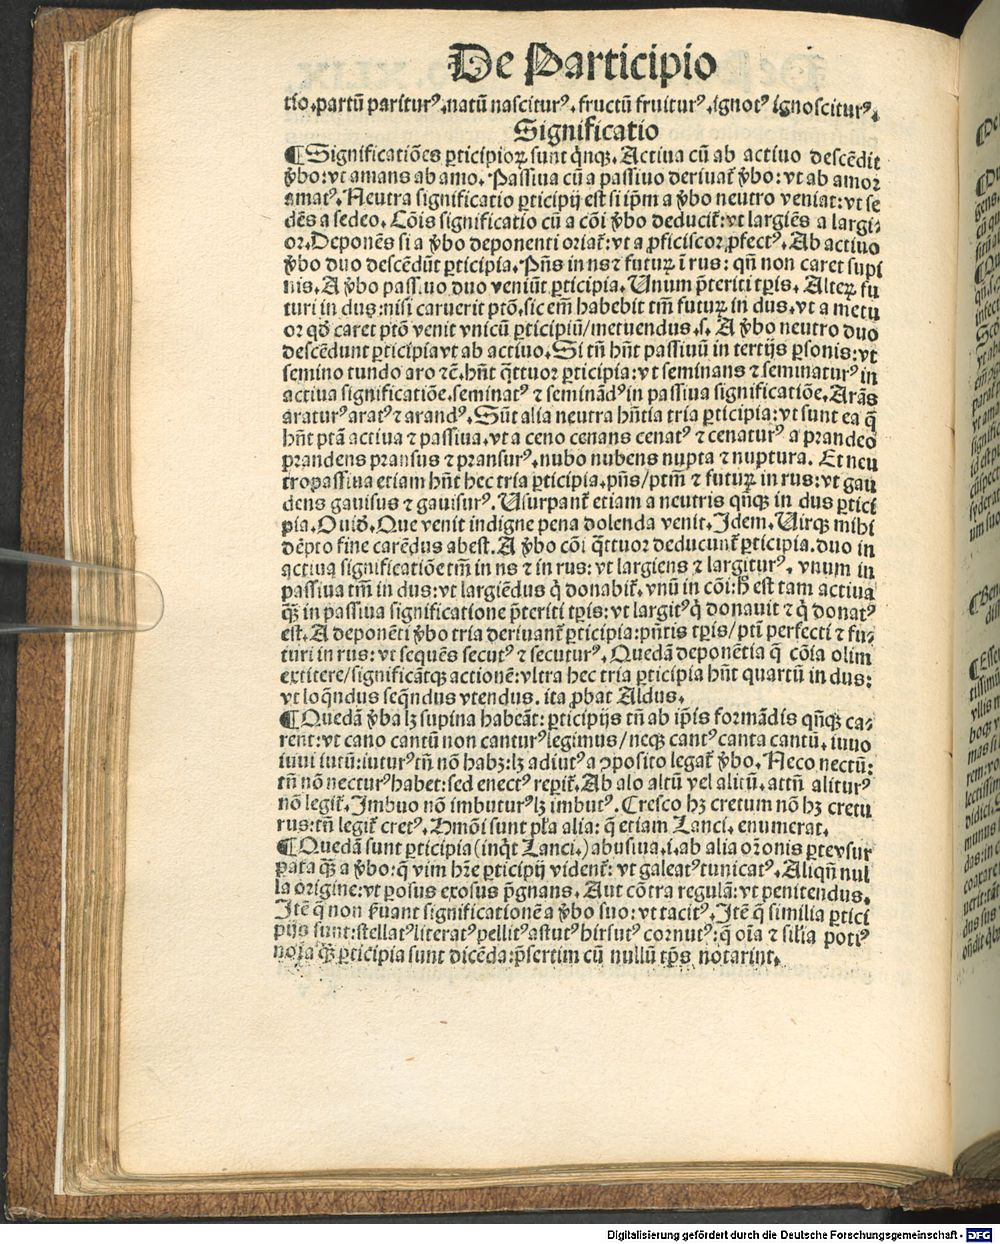 De Participio
tio.partū paritur⁹.natū nascitur⁹.fructū fruitur⁹.ignot⁹ ignoscitur⁹.
Significatio
¶Significatiões ꝑticipioꝝ sunt q̇nqꝫ. Actiua cū ab actiuo descēdit
v̄bo: vt amans ab amo. Passiua cū a passiuo deriuat̄ v̄bo: vt ab amor
amat⁹. Neutra significatio ꝑticipij est si ip̄m a v̄bo neutro veniat: vt se
dēs a sedeo. Cōis significatio cū a cōi v̄bo deducit̄: vt largiēs a largi⸗
or. Deponēs si a v̄bo deponenti oriat̄: vt a ꝓficiscor ꝓfect⁹. Ab actiuo
v̄bo duo descēdūt ꝑticipia. Pn̄s in ns ⁊ futuꝝ ī rus: qn̄ non caret supi
nis. A v̄bo passiuo duo veniūt ꝑticipia. Unum p̄teriti tp̄is. Alteꝝ fu
turi in dus: nisi caruerit ptō. sic em̄ habebit tm̄ futuꝝ in dus. vt a metu
or qd̄ caret ptō venit vnicū ꝑticipiū/metuendus. s. A v̄bo neutro duo
descēdunt ꝑticipia vt ab actiuo. Si tn̄ hn̄t passiuū in tertijs ꝑsonis: vt
semino tundo aro ⁊c̄. hn̄t q̄ttuor ꝑticipia: vt seminans ⁊ seminatur⁹ in
actiua significatiōe. seminat⁹ ⁊ seminād⁹ in passiua significatiōe. Arās
aratur⁹ arat⁹ ⁊ arand⁹. Sūt alia neutra hn̄tia tria ꝑticipia: vt sunt ea q̄
hn̄t ptā actiua ⁊ passiua. vt a ceno cenans cenat⁹ ⁊ cenatur⁹ a prandeo
prandens pransus ⁊ pransur⁹. nubo nubens nupta ⁊ nuptura. Et neu
tropassiua etiam hn̄t hec tria ꝑticipia. pn̄s/ptm̄ ⁊ futuꝝ in rus: vt gau
dens gauisus ⁊ gauisur⁹. Usurpant̄ etiam a neutris qn̄qꝫ in dus ꝑtici
pia. Ouid. Que venit indigne pena dolenda venit. Idem. Uirqꝫ mihi
dēpto fine carēdus abest. A v̄bo cōi q̄ttuor deducunt̄ ꝑticipia. duo in
actiua significatiōe tm̄ in ns ⁊ in rus: vt largiens ⁊ largitur⁹. vnum in
passiua tm̄ in dus: vt largiēdus q̇ donabit̄. vnū in cōi: h̄ est tam actiua
qꝫ̄ in passiua significatione p̄teriti tp̄is: vt largit⁹ q̇ donauit ⁊ q̇ donat⁹
est. A deponēti v̄bo tria deriuant̄ ꝑticipia: pn̄tis tp̄is/ptī perfecti ⁊ fu⸗
turi in rus: vt sequēs secut⁹ ⁊ secutur⁹. Quedā deponētia q̄ cōia olim
extitere/significātqꝫ actionē: vltra hec tria ꝑticipia hn̄t quartū in dus:
vt loq̄ndus seq̄ndus vtendus. ita ꝓbat Aldus.
¶Quedā v̄ba lꝫ supina habeāt: ꝑticipijs tn̄ ab ip̄is formādis qn̄qꝫ ca⸗
rent: vt cano cantū non cantur⁹ legimus/necꝫ cant⁹ canta cantū. iuuo
iuui iutū: iutur⁹ tn̄ nō habꝫ: lꝫ adiut⁹ a ꝯposito legat̄ v̄bo. Neco nectū:
tn̄ nō nectur⁹ habet: sed enect⁹ reꝑit̄. Ab alo altū vel alitū. attn̄ alitur⁹
nō legit̄. Imbuo nō imbutur⁹ lꝫ imbut⁹. Cresco hꝫ cretum nō hꝫ cretu
rus: tn̄ legit̄ cret⁹. Hmōi sunt pl̄a alia: q̄ etiam Lanci. enumerat.
¶Quedā sunt ꝑticipia (inq̇t Lanci.) abusiua. i. ab alia or̄onis ꝑte vsur
pata qꝫ̄ a v̄bo: q̄ vim hr̄e ꝑticipij vident̄: vt galeat⁹ tunicat⁹. Aliqn̄ nul
la origine: vt ꝑosus exosus p̄gnans. Aut cōtra regulā: vt penitendus.
Itē q̄ non s̄uant significationē a v̄bo suo: vt tacit⁹. Itē q̄ similia ꝑtici
pijs sunt: stellat⁹ literat⁹ pellit⁹ astut⁹ hirsut⁹ cornut⁹: q̄ oīa ⁊ silīa poti⁹
noīa qꝫ̄ ꝑticipia sunt dicēda: p̄sertim cū nullū tp̄s notarint.
Digitalisierung gefördert durch die Deutsche Forschungsgemeinschaft - DFG